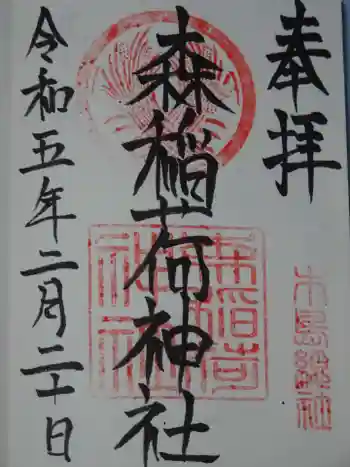 奉拝
森稲荷神社
令和五年二月二十日